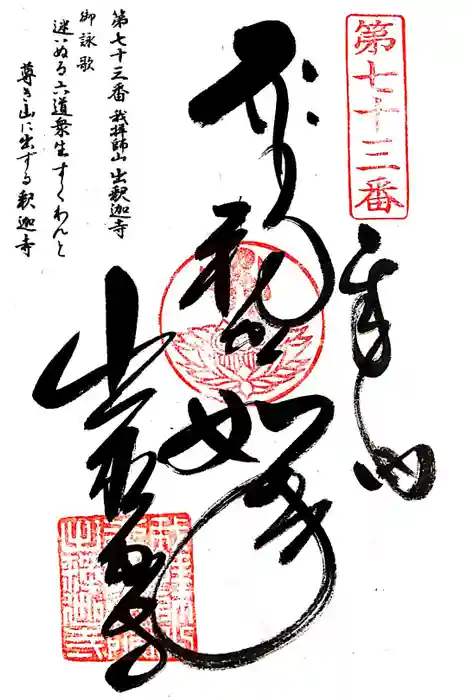 第七十三番
奉納
釈迦如来
出釈迦寺
第七十三番 我拝師山 出釈迦寺
御詠歌
迷いぬる六道衆生すくわんと
尊き山に出ずる釈迦寺